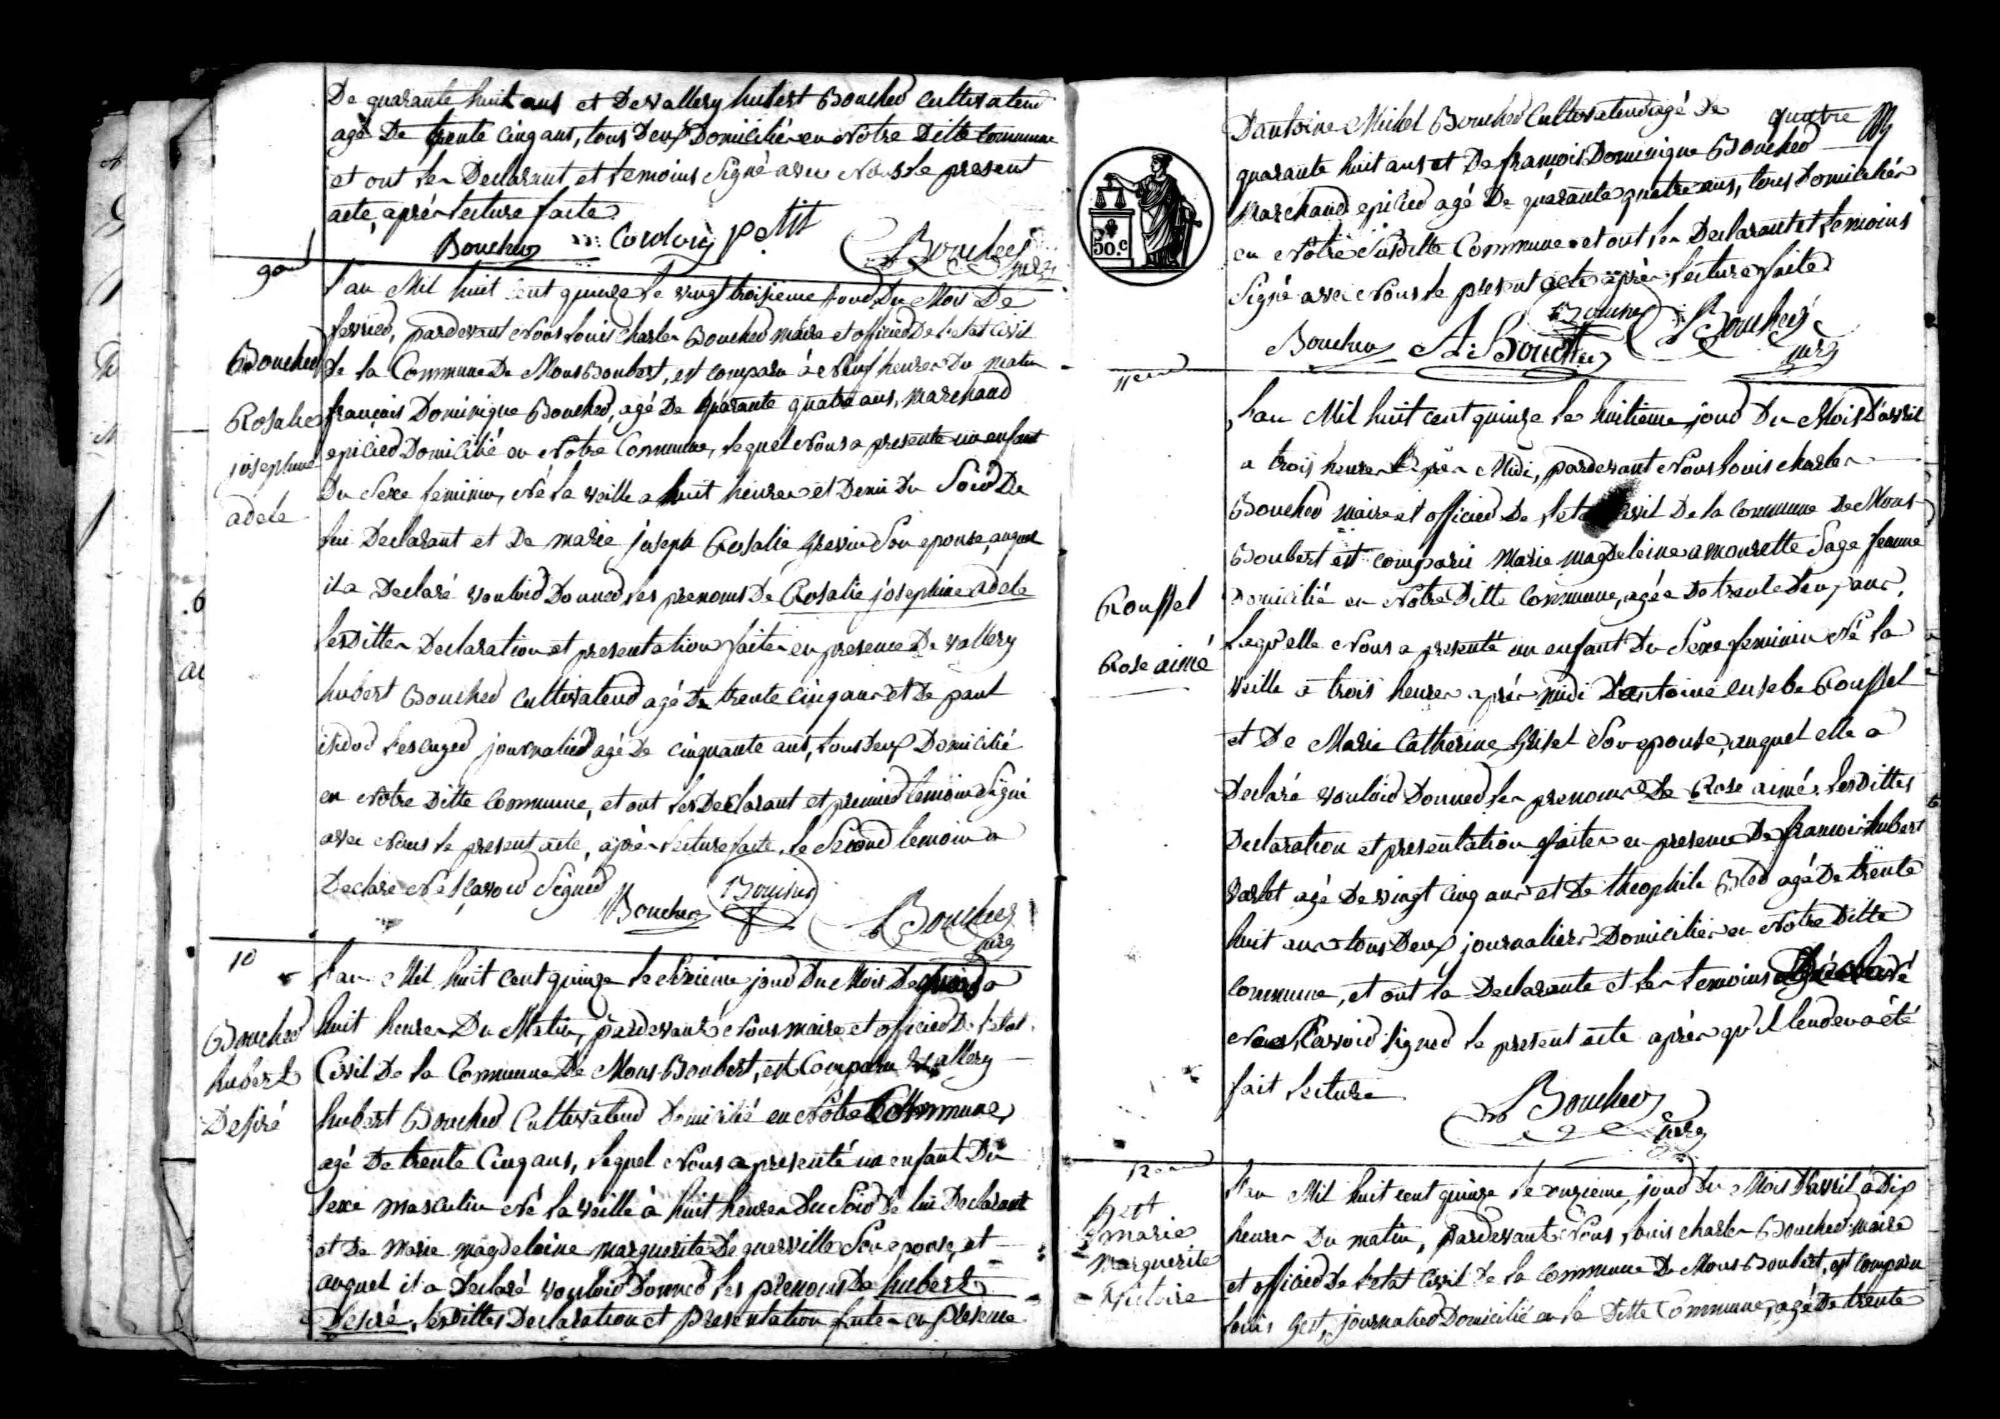 De quarante huit ans et De vallery hubert Boucher Cultivateur
agé De trente cinq ans, tous Deux Domicilié en Notre Ditte Commune
et ont les Declarant et temoins Signé avec Nous le present
acte, après lecture faite
Boucher Petit Boucher
9eme
Boucher
Rosalie
josephine
adele
l'an Mil huit cent quinze le vingt troisieme jour Du Mois De
fevrier, pardevant Nous Louis Charles Boucher maire et officier De l'etat Civil
De la Commune De Mons Boubert, est comparu à Neuf heures Du matin
français Dominique Boucher, agé De quarante quatre ans, Marchand
epicier Domicilié en Notre Commune, lequel Nous a presenté un enfant
Du Sexe feminin, Né la veille a huit heures et Demi Du Soir De
lui Declarant et De marie joseph Rosalie Grevin Son epouse, auquel
il a Declaré vouloir Donner les prenoms De Rosalie josephine adele
lesDittes Declaration et presentation faites en presence De vallery
hubert Boucher Cultivateur agé De trente cinq ans et De paul
isidor journalier agé De cinquante ans, tous Deux Domicilié
en Notre Ditte Commune, et ont les Declarant et premier temoin Signé
avec Nous le present acte, après lecture faite, le Second temoin a
Declaré Ne Sçavoir Signer
Boucher Boucher
10
Boucher
hubert
Desiré
l'an Mil huit cent quinze le jour Du Mois De a
huit heures Du Matin, pardevant Nous maire et officier De l'etat
Civil De la Commune De Mons Boubert, est Comparu Vallery
hubert Boucher Cultivateur Domicilié en Notre Commune,
agé De trente Cinq ans, lequel Nous a presenté un enfant Du
Sexe masculin Né la veille à huit heures Du Soir De lui Declarant
et De Marie magdeleine marguerite Dequerville Son epouse, et
auquel il a Declaré vouloir Donner les prenoms De hubert
Desiré, lesDittes Declaration et presentation faites en presence
D'antoine Michel Boucher Cultivateur agé De quatre
quarante huit ans et De françois Dominique Boucher
Marchand epicier agé De quarante quatre ans, tous Domiciliés
en Notre Susditte Commune et ont les Declarant et temoins
Signé avec Nous le present acte après lecture faite
50.c
Boucher A. Boucher Boucher
11eme
Roussel
Rose aimé
l'an Mil huit cent quinze le huitieme jour Du Mois D'avril
a trois heures après Midi, pardevant Nous Louis Charles
Boucher maire et officier De l'etat Civil De la Commune De Mons
Boubert est comparu Marie magdeleine amourette Sage femme
Domicilié en Notre Ditte Commune, agée De trente Deux ans,
laqu'elle Nous a presenté un enfant Du Sexe feminin Né la
veille a trois heures après midi D'antoine eusebe Roussel
et De Marie Catherine Griset Son epouse, auquel elle a
Declaré vouloir Donner les prenoms De Rose aimé, lesDittes
Declaration et presentation faites en presence De françois hubert
Varlet agé De vingt Cinq ans et De theophile agé De trente
huit ans tous Deux journaliers Domiciliés en Notre Ditte
Commune, et ont la Declarante et les temoins Declaré
Ne Sçavoir Signer le present acte après qu'il leur en a été
fait lecture
Boucher
12eme
Gest
marie
marguerite
victoire
l'an Mil huit cent quinze le onzieme jour Du Mois D'avril à Dix
heures Du matin, pardevant Nous, Louis Charles Boucher maire
et officier De l'etat Civil De la Commune De Mons Boubert, est comparu
Louis Gest, journalier Domicilié en la Ditte Commune, agé De trente